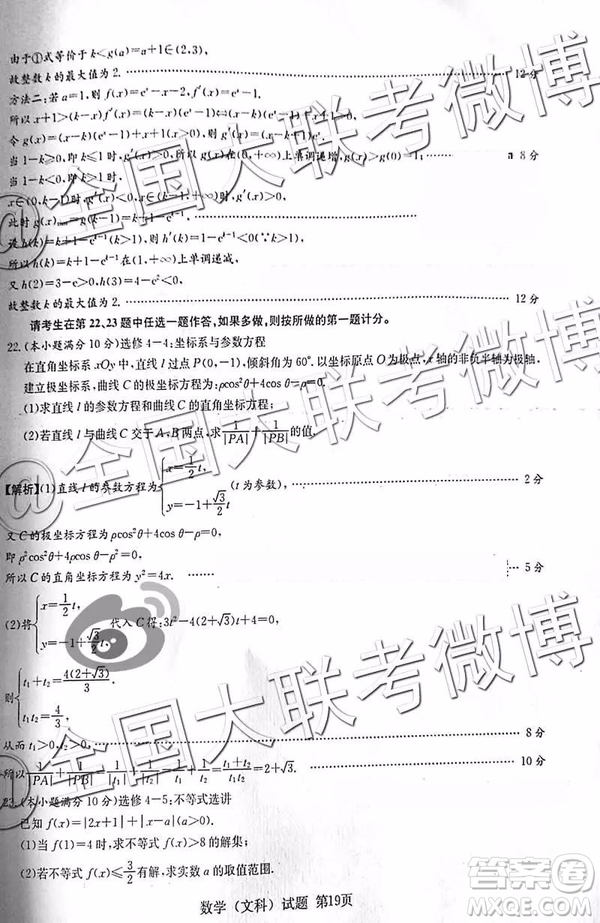 由于①式等价于k<g(a)=a+1∈(2,3),
故整数k的最大值为2. 12分
方法二:若a=1,则f(x)=eˣ-x-1,f′(x)=eˣ-1.
所以x+1>(k-x)f′(x)=(k-x)(eˣ-1)
令g(x)=
当1-k≥0,即k≤1时, g′(x)>0,所以g(x)在(0,+∞)上单调递增,g(x)>g(0)=1; 8分
当1-k<0,即k>1时,
x∈(0,k-1)时,g′(x)<0,x∈
此时g(x)
设h(k)=k+1-eᵏ⁻¹(k>1),则h′(k)=1-eᵏ⁻¹<0(∵k>1).
所以h(k)=k+1-eᵏ⁻¹在(1,+∞)上单调递减.
又h(2)=3-e>0,h(3)=4-e²<0,
故整数k的最大值为2. 12分
请考生在第22、23题中任选一题作答,如果多做,则按所做的第一题计分。
22.(本小题满分10分)选修4-4:坐标系与参数方程
在直角坐标系xOy中,直线l过点P(0,-1),倾斜角为60°.以坐标原点O为极点,x轴的非负半轴为极轴,
建立极坐标系,曲线C的极坐标方程为ρcos²θ+4cosθ-ρ=0.
(1)求直线l的参数方程和曲线C的直角坐标方程;
(2)若直线l与曲线C交于A、B两点,求1/|PA|+1/|PB|的值.
【解析】(1)直线l的参数方程为{x=1/2t, y=-1+√3/2t (t为参数), 2分
又C的极坐标方程为ρcos²θ+4cosθ-ρ=0,
即ρ²cos²θ+4ρcosθ-ρ²=0,
所以C的直角坐标方程为y²=4x. 5分
(2)将{x=1/2t, y=-1+√3/2t 代入C得:3t²-4(2+√3)t+4=0
则{t₁+t₂=4(2+√3)/3, t₁t₂=4/3.
从而t₁>0,t₂>0. 8分
所以1/|PA|+1/|PB|=1/|t₁|+1/|t₂|=1/t₁+1/t₂=(t₁+t₂)/(t₁t₂)=2+√3. 10分
23.(本小题满分10分)选修4-5:不等式选讲
已知f(x)=|2x+1|+|x-a|(a∈R).
(1)当a=4时,求不等式f(x)>8的解集;
(2)若不等式f(x)≤3/2有解,求实数a的取值范围.
数学(文科)试题 第19页
@全国大联考微博
@全国大联考微博
全国大联考微博
答案圈